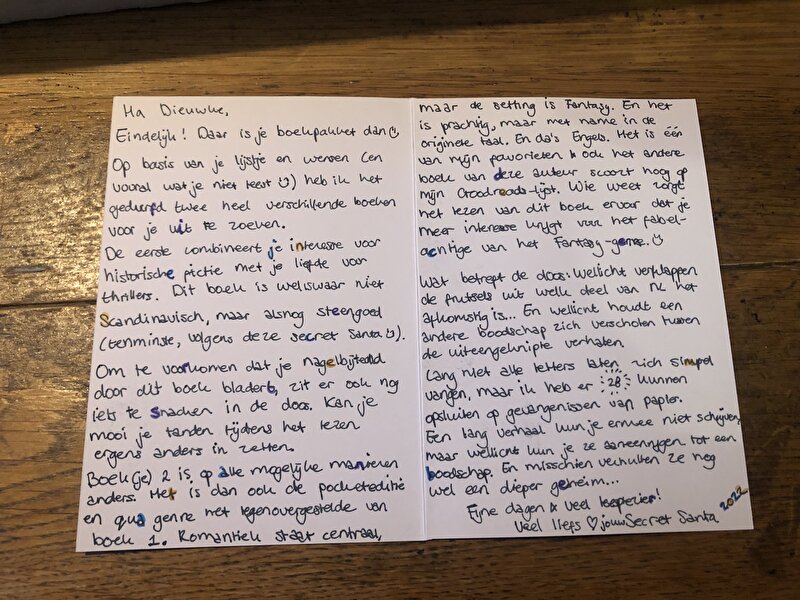 Ha Dieuwke,
Eindelijk! Daar is je boekpakket dan ☺
Op basis van je lijstje en wensen (en
vooral wat je niet leest ☺) heb ik het
gedurfd twee heel verschillende boeken
voor je uit te zoeken.
De eerste combineert je interesse voor
historische fictie met je liefde voor
thrillers. Dit boek is weliswaar niet
Scandinavisch, maar alsnog steengoed
(tenminste, volgens deze secret Santa ☺).
Om te voorkomen dat je nagelbijtend
door dit boek bladert, zit er ook nog
iets te snacken in de doos. Kan je
mooi je tanden tijdens het lezen
ergens anders in zetten.
Boek(je) 2 is op alle mogelijke manieren
anders. Het is dan ook de pocketeditie
en qua genre het tegenovergestelde van
boek 1. Romantiek staat centraal,
maar de setting is Fantasy. En het
is prachtig, maar met name in de
originele taal. En da's Engels. Het is één
van mijn favorieten & ook het andere
boek van deze auteur scoort hoog op
mijn Goodreads-lijst. Wie weet zorgt
het lezen van dit boek ervoor dat je
meer interesse krijgt voor het fabel-
achtige van het Fantasy-genre. ☺
Wat betreft de doos: Wellicht verklappen
de frutsels uit welk deel van NL het
afkomstig is... En wellicht houdt een
andere boodschap zich verscholen tussen
de uiteengeknipte verhalen.
Lang niet alle letters laten zich simpel
vangen, maar ik heb er 28 kunnen
opsluiten op gevangenissen van papier.
Een lang verhaal kun je ermee niet schrijven,
maar wellicht kun je ze aaneenrijgen tot een
boodschap. En misschien verhullen ze nog
wel een dieper geheim...
Fijne dagen & veel leesplezier!
Veel liefs ♡ jouw Secret Santa 2022